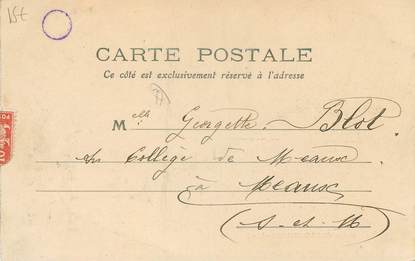 15t
CARTE POSTALE
Ce côté est exclusivement réservé à l'adresse
Mlle Georgette Blot
Au Collège de Meaux
à Meaux
(S. et M)
10